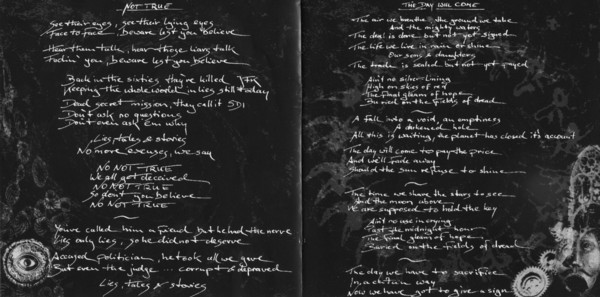 NOT TRUE
See their eyes, see their lying eyes
Face to face, Beware lest you believe
Hear them talk, hear those liars talk
Foolin' you, Beware lest you believe
Back in the sixties they've killed JFK
Keeping the whole world in lies still today
Dead secret mission, they call it SDI
Don't ask no questions
Don't even ask 'em why
Lies, tales & stories
No more excuses, we say
NO NOT TRUE
We all get deceived
NO NOT TRUE
So don't you believe
NO NOT TRUE
You've called him a friend but he had the nerve
Lies only lies, so he did not deserve
Accused politician, he took all we gave
But even the judge ... corrupt & depraved
Lies, tales & stories
THE DAY WILL COME
The air we breathe, the ground we take
And the mighty waters
The deal is done but not yet signed
The life we live in rain or shine
Our sons & daughters
The trade is sealed but not yet
Ain't no silver lining
High on skies of red
The final gleam of hope
Buried on the fields of dread
A fall into a void, an emptiness
A darkened hole
All this is waiting, the planet has closed it's account
The day will come to pay the price
And we'll fade away
Should the sun refuse to shine
The time we share the stars to see
And the moon above
We are supposed to hold the key
Ain't no use in crying
Past the midnight hour
The final gleam of hope
Buried on the fields of dread
The day we have to sacrifice
In a certain way
Now we have got to give a sign